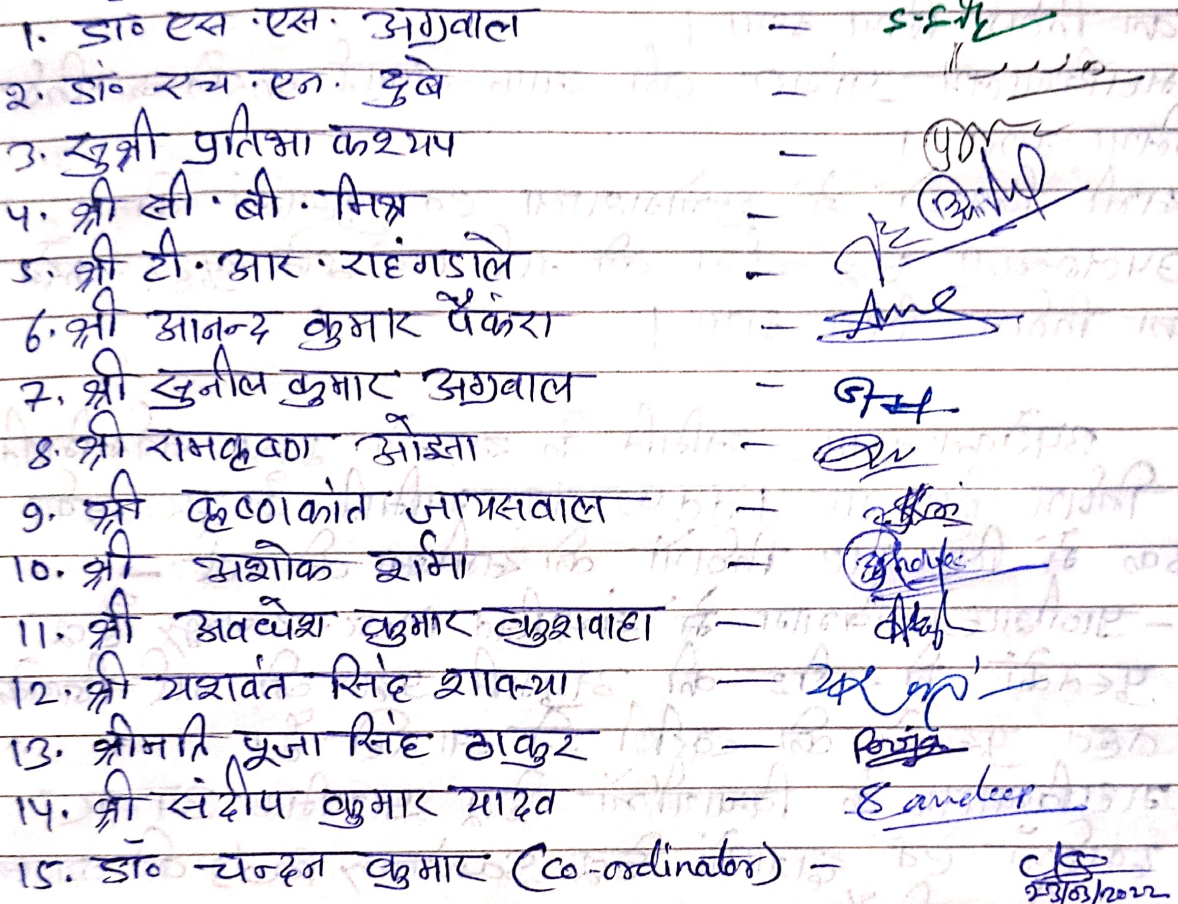 1. डॉ० एस. एस. अग्रवाल -
२. डॉ० एच. एन. दुबे -
3. सुश्री प्रतिभा कश्यप -
4. श्री सी. बी. मिश्र -
5. श्री टी. आर. राहंगडाले -
6. श्री आनन्द कुमार पैकंरा -
7. श्री सुनील कुमार अग्रवाल -
8. श्री रामकृष्ण ओझा -
9. श्री कृष्णकांत जायसवाल -
10. श्री अशोक शर्मा -
11. श्री अवधेश कुमार कुशवाहा -
12. श्री यशवंत सिंह शावन्या -
13. श्रीमति पूजा सिंह ठाकुर -
14. श्री संदीप कुमार यादव - Sandeep
15. डॉ० चन्दन कुमार (Co-ordinator) -
23/03/2022